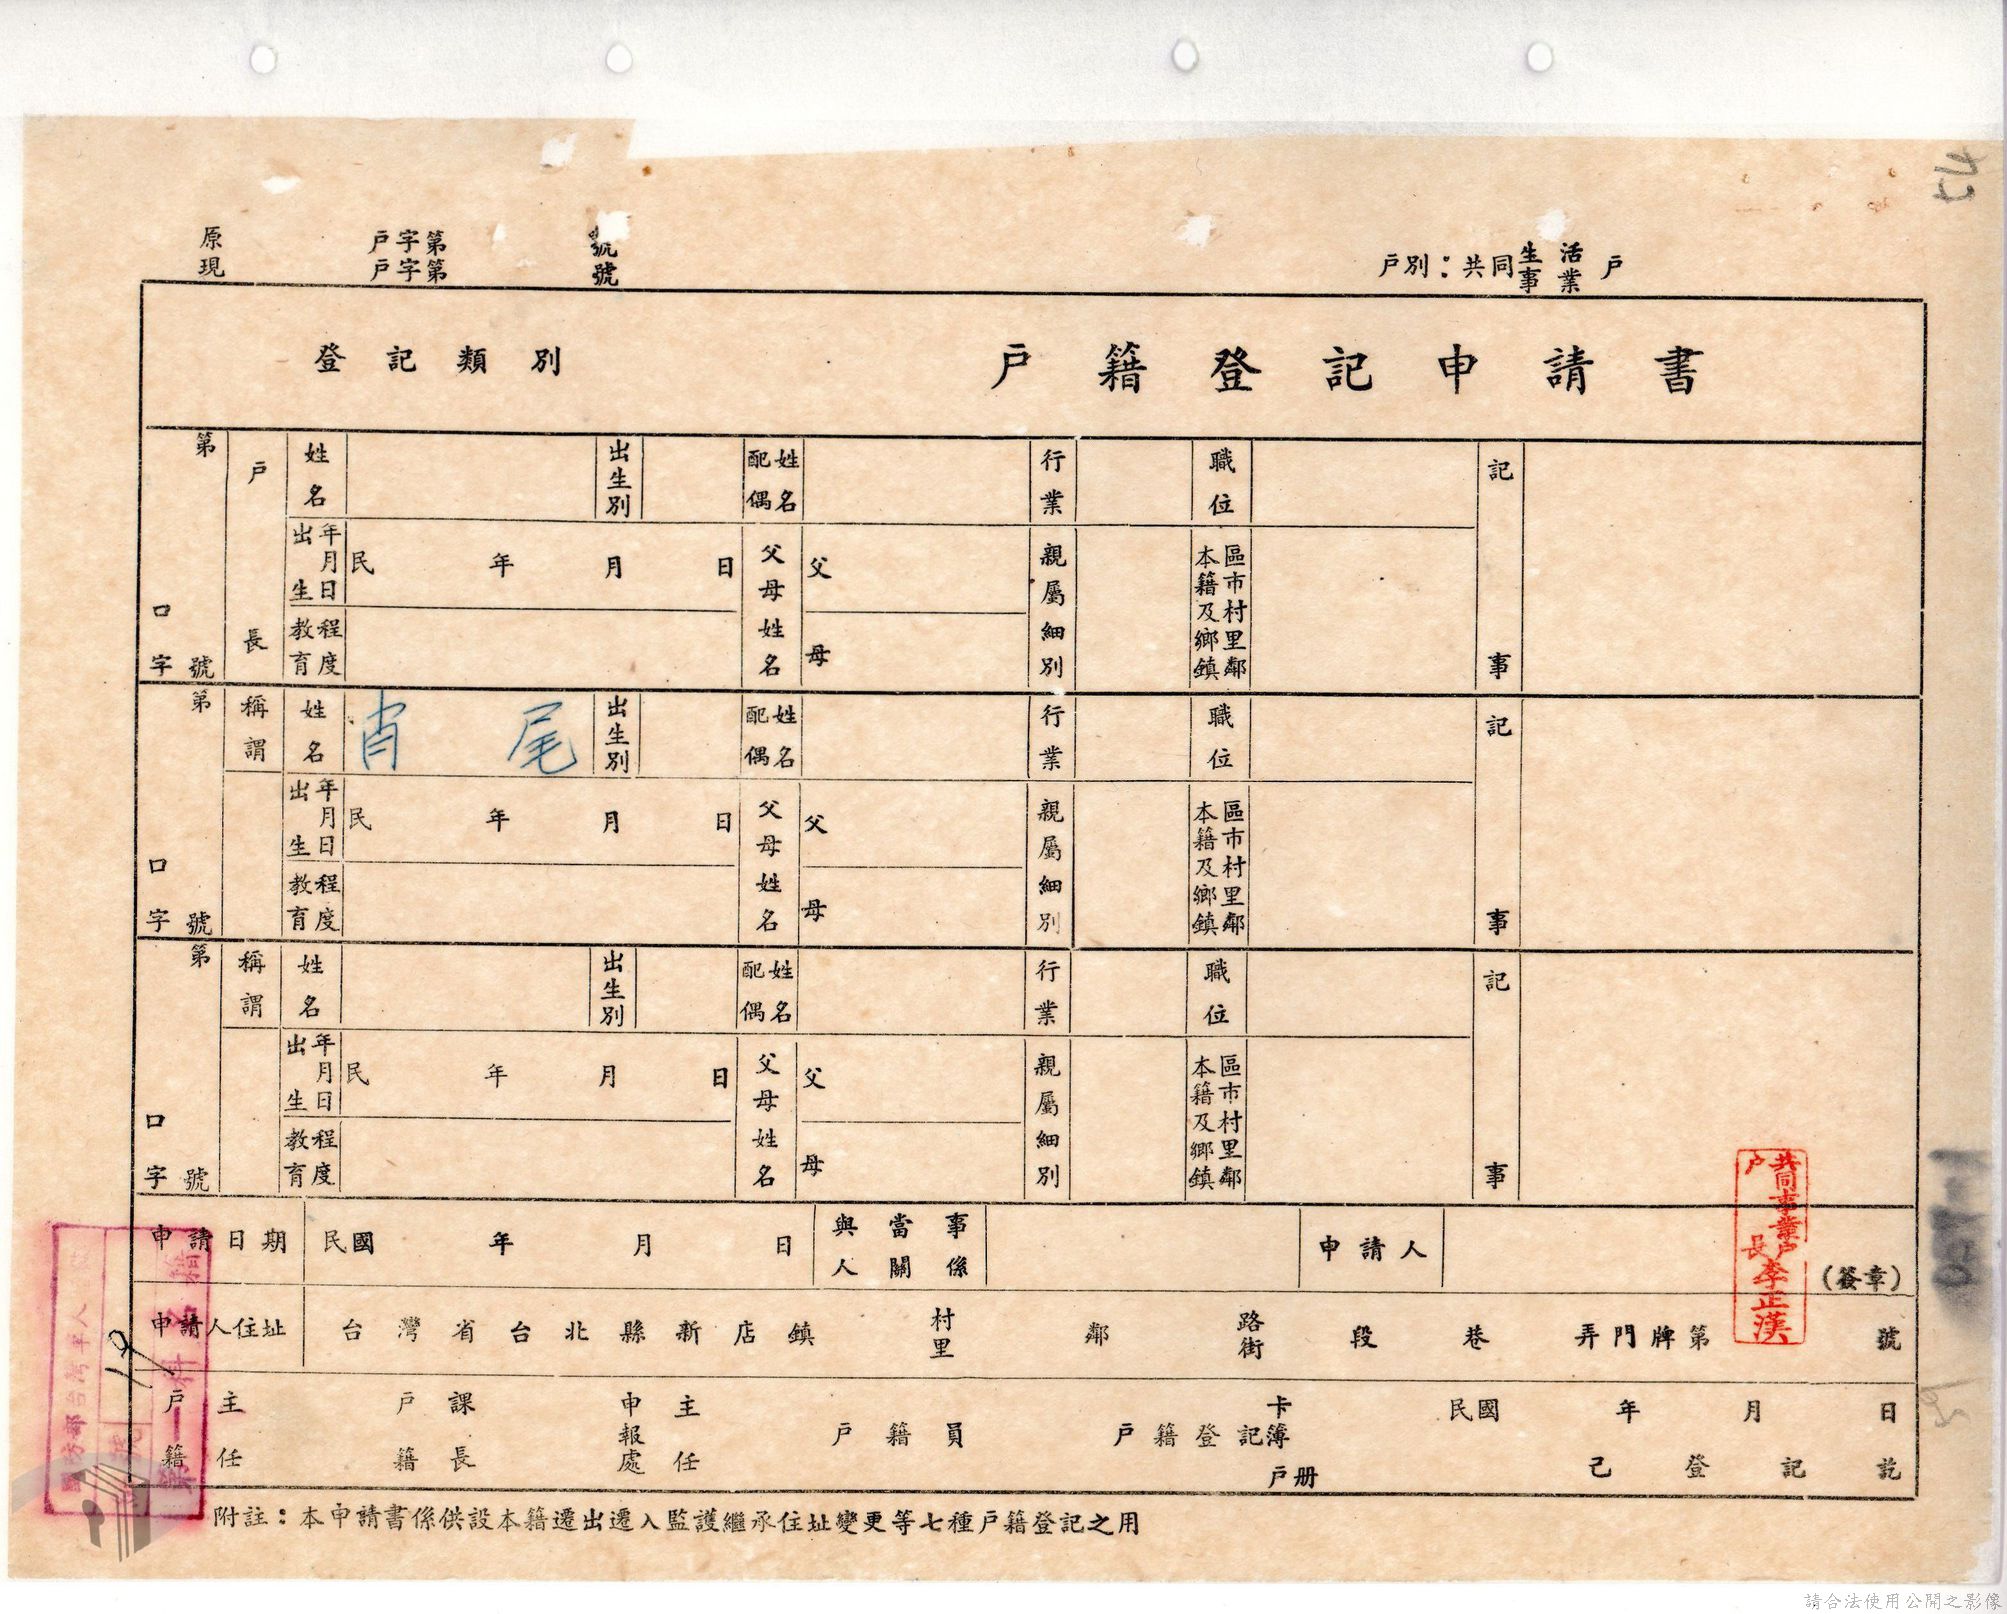 原 戶字第 號
現 戶字第 號
戶別：共同生活事業戶
登記類別
戶籍登記申請書
第 口字 號
戶長
姓名
出生別
配偶姓名
行業
職位
記事
出生年月日
民 年 月 日
父母姓名
父
母
親屬細別
本籍及鄉鎮區市村里鄰
教育程度
第 口字 號
稱謂
姓名
肖 尾
出生別
配偶姓名
行業
職位
記事
出生年月日
民 年 月 日
父母姓名
父
母
親屬細別
本籍及鄉鎮區市村里鄰
教育程度
第 口字 號
稱謂
姓名
出生別
配偶姓名
行業
職位
記事
出生年月日
民 年 月 日
父母姓名
父
母
親屬細別
本籍及鄉鎮區市村里鄰
教育程度
申請日期 民國 年 月 日
與當事人關係
申請人
(簽章)
共同事業戶
戶長李正漢
申請人住址 台灣省台北縣新店鎮 村里 鄰 路街 段 巷 弄門牌第 號
戶籍主任 戶籍課長 申報處主任 戶籍員 戶籍登記卡簿戶冊 民國 年 月 日
己登記訖
附註：本申請書係供設本籍遷出遷入監護繼承住址變更等七種戶籍登記之用
國防部台灣軍人
請合法使用公開之影像